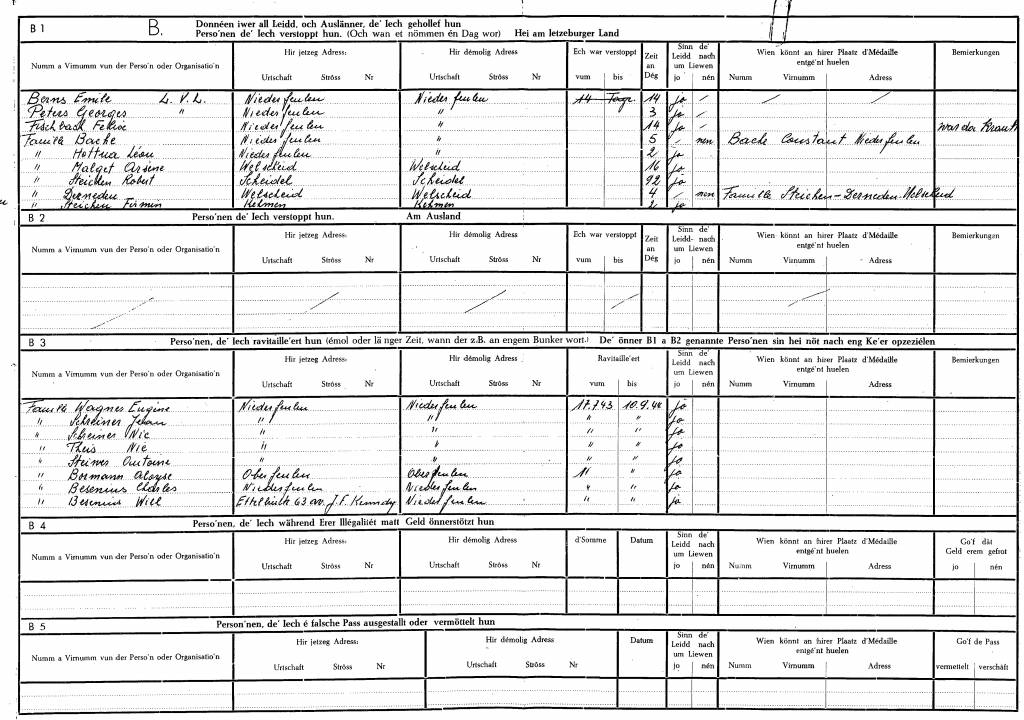 B 1 B. Donnéen iwer all Leidd, och Auslänner, de' Iech gehollef hun
Perso'nen de' Iech verstoppt hun. (Och wan et nömmen én Dag wor) Hei am letzeburger Land
Numm a Virnumm vun der Perso'n oder Organisatio'n Hir jetzeg Adress: Hir démolig Adress Ech war verstoppt Zeit an Dég Sinn de' Leidd nach um Liewen Wien könnt an hirer Plaatz d'Médaille entgé'nt huelen Bemierkungen
Urtschaft Ströss Nr Urtschaft Ströss Nr vum bis jo nén Numm Virnumm Adress
Berns Emile L. V. L. Niederfeulen Niederfeulen 14 Tage 14 jo
Peters Georges " Niederfeulen " 3 jo
Fischbach Niederfeulen " 14 jo war der
Famille Bache Niederfeulen " 5 nen Bache Constant Niederfeulen
" Hottua Léon Niederfeulen " 2 jo
" Malget Arsène Welscheid Welscheid 16 jo
" Steichen Robert Scheidel Scheidel 92 jo
" Derneden Welscheid Welscheid 4 nen Famille Steichen-Derneden Welscheid
" Steichen Firmin Kehmen Kehmen 2 jo
B 2 Perso'nen de' Iech verstoppt hun. Am Ausland
Numm a Virnumm vun der Perso'n oder Organisatio'n Hir jetzeg Adress: Hir démolig Adress Ech war verstoppt Zeit an Dég Sinn de' Leidd- nach um Liewen Wien könnt an hirer Plaatz d'Médaille entgé'nt huelen Bemierkungen
Urtschaft Ströss Nr Urtschaft Ströss Nr vum bis jo nén Numm Virnumm Adress
B 3 Perso'nen, de' Iech ravitaille'ert hun (émol oder länger Zeit, wann der z.B. an engem Bunker wort.) De' önner B1 a B2 genannte Perso'nen sin hei nöt nach eng Ke'er opzeziélen
Numm a Virnumm vun der Perso'n oder Organisatio'n Hir jetzeg Adress: Hir démolig Adress Ravitaille'ert Sinn de' Leidd nach um Liewen Wien könnt an hirer Plaatz d'Médaille entgé'nt huelen Bemierkungen
Urtschaft Ströss Nr Urtschaft Ströss Nr vum bis jo nén Numm Virnumm Adress
Famille Wagner Eugène Niederfeulen Niederfeulen 17.7.43 10.9.44 jo
" Schreiner " " " " jo
" Schreiner Nic " " " " jo
" Theis Nic " " " " jo
" Steiwer Antoine " " " " jo
" Bormann Aloyse Oberfeulen Oberfeulen " " jo
" Besenius Charles Niederfeulen Niederfeulen " " jo
" Besenius Will Ettelbrück 63 av. J.F. Kennedy Niederfeulen " " jo
B 4 Perso'nen, de' Iech während Erer Illégalitét matt Geld önnerstötzt hun
Numm a Virnumm vun der Perso'n oder Organisatio'n Hir jetzeg Adress: Hir démolig Adress d'Somme Datum Sinn de' Leidd nach um Liewen Wien könnt an hirer Plaatz d'Médaille entgé'nt huelen Go'f dât Geld erem gefrot
Urtschaft Ströss Nr Urtschaft Ströss Nr jo nén Numm Virnumm Adress jo nén
B 5 Person'nen, de' Iech é falsche Pass ausgestallt oder vermöttelt hun
Numm a Virnumm vun der Perso'n oder Organisatio'n Hir jetzeg Adress: Hir démolig Adress Datum Sinn de' Leidd nach um Liewen Wien könnt an hirer Plaatz d'Médaille entgé'nt huelen Go'f de Pass
Urtschaft Ströss Nr Urtschaft Ströss Nr jo nén Numm Virnumm Adress vermettelt verschâft